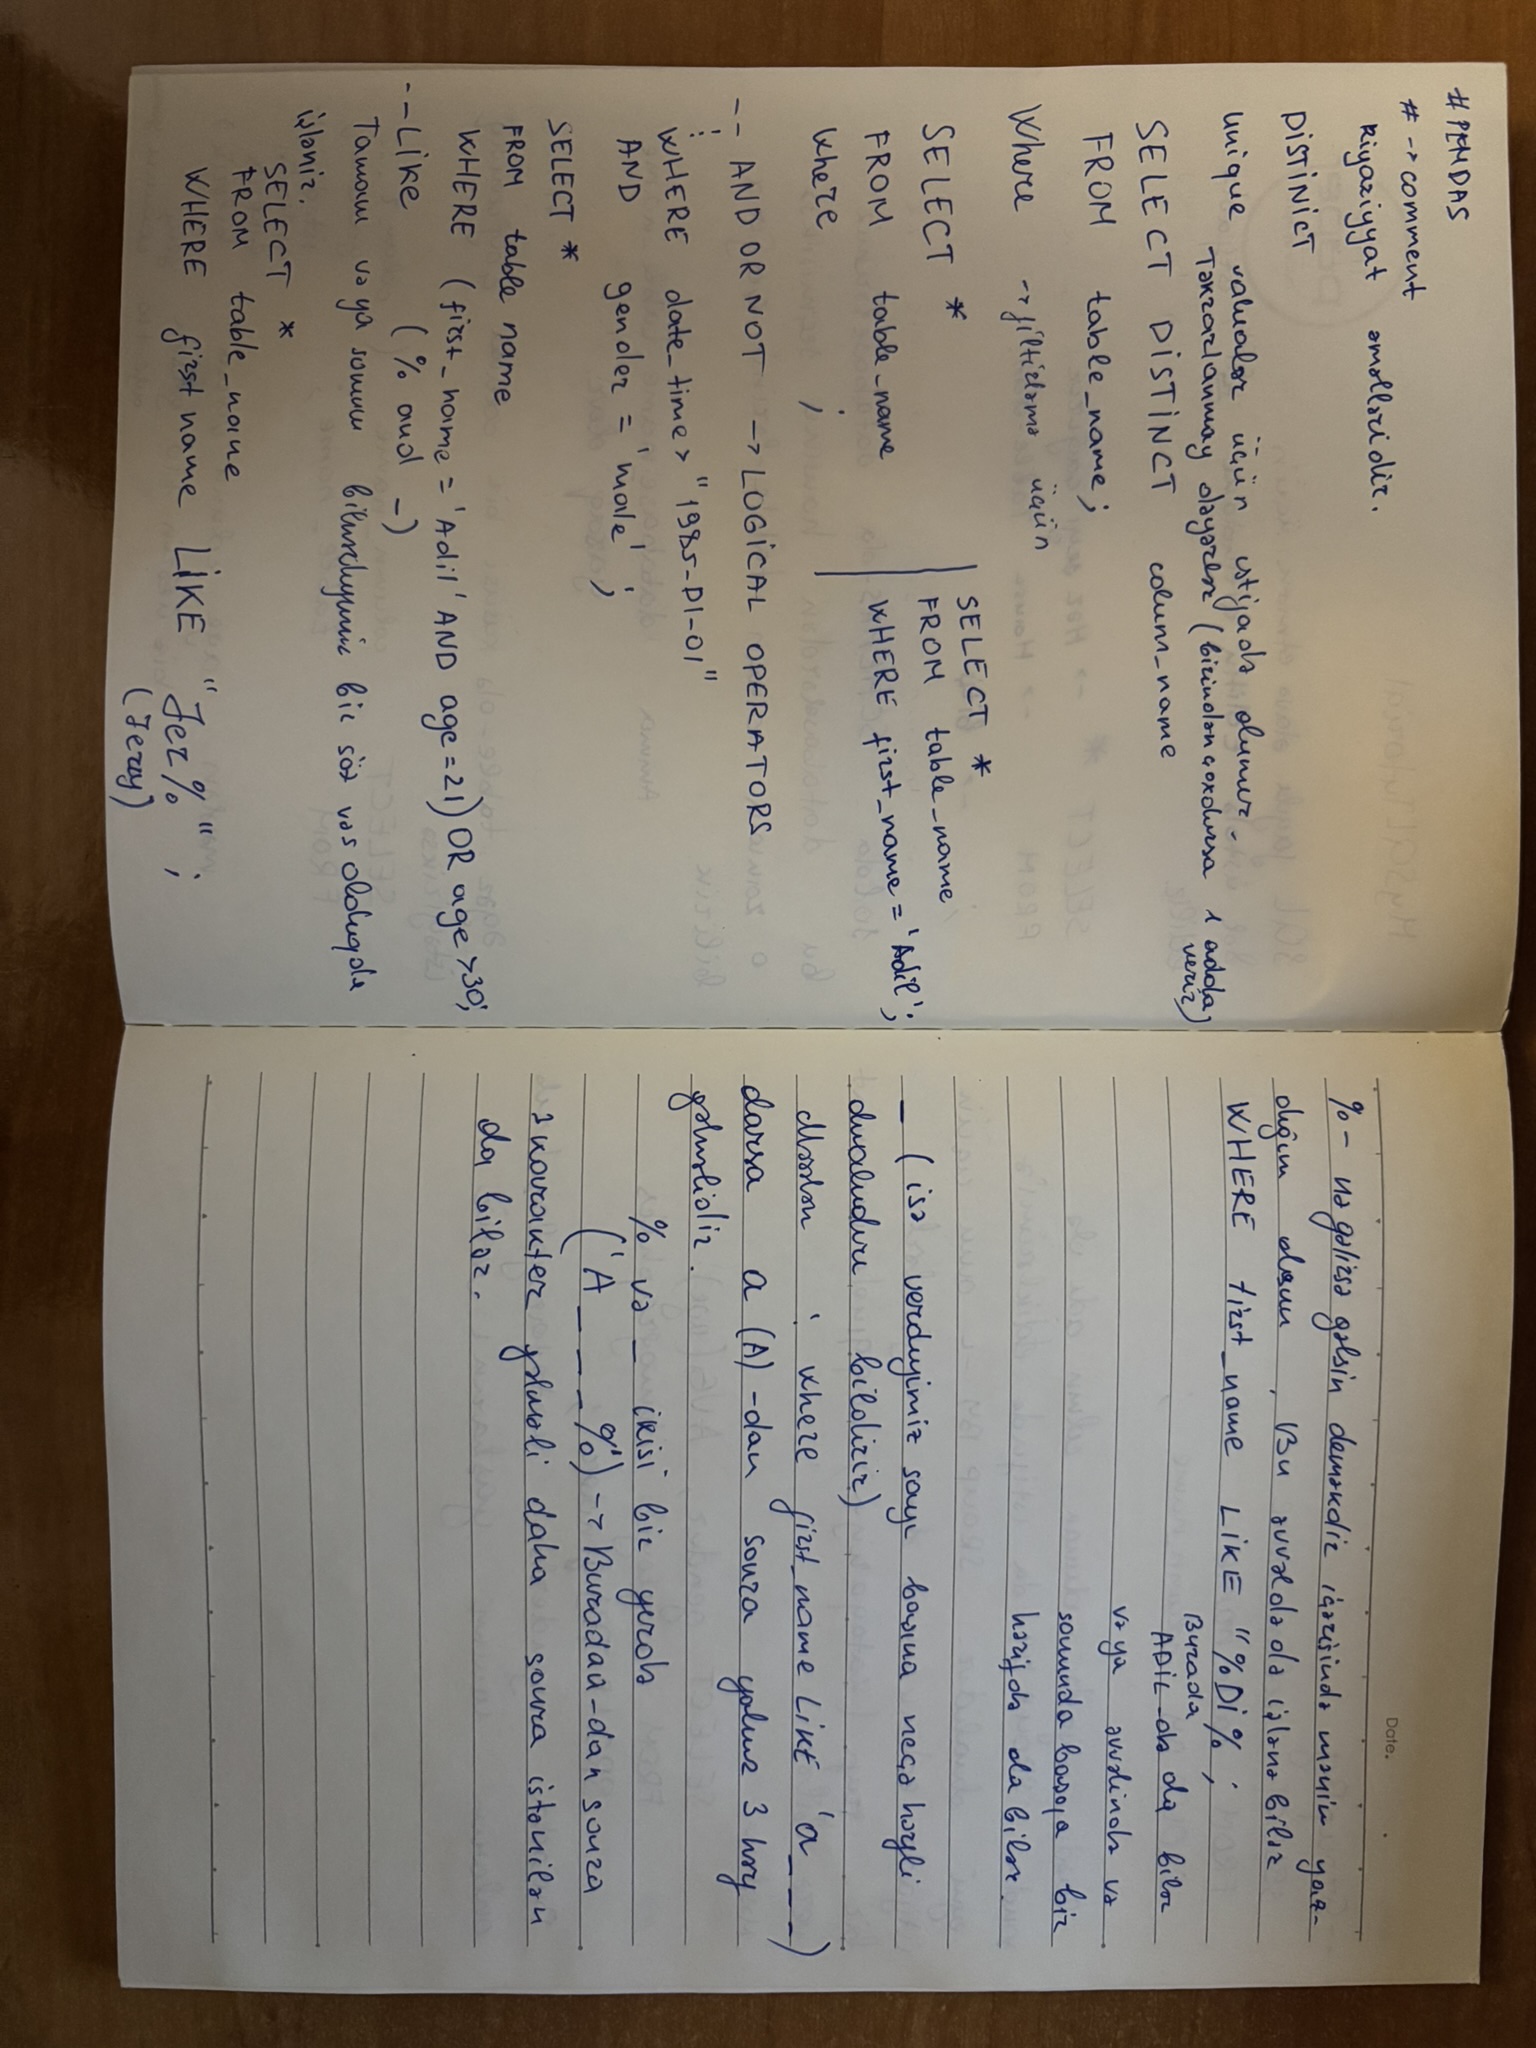 #PEMDAS
# -> comment
Riyaziyyat əməlləridir.
DİSTİNİCT
Unique valuelər üçün istifadə olunur.
Təkrarlanmay dəyərlər (birindən çoxdursa 1 adda,
verir)
SELECT DİSTİNCT column_name
FROM table_name;
Where -> filtirləmə üçün
SELECT *
FROM table_name
where ;
SELECT *
FROM table_name
WHERE first_name = 'Adil';
-- AND OR NOT -> LOGİCAL OPERATORS
:
WHERE date_time > "1985-01-01"
AND gender = 'male' ;
SELECT *
FROM table name
WHERE (first_name = 'Adil' AND age = 21) OR age >30;
-- Like (% and _)
Tamam və ya sonun bilmədiyimiz bir söz vəs olduqda
işlənir.
SELECT *
FROM table_name
WHERE first name LİKE "Jer%" ;
(Jeray)
Date:
% - nə gəlirsə gəlsin deməkdir içərisində mənim yaz-
dığım olsun, Bu əvvəldə də işlənə bilər
WHERE first_name LİKE "%Dİ%";
Burada
ADİL-də də bilər
və ya əvvəlində və
sonunda başqa bir
hərifdə da bilər.
_ (isə verdiyimiz sayı başına neçə hərfli
olduğunu bildirir)
Məsələn, where first_name LİKE 'a_ _ _)
darsa a (A)-dan sonra yalnız 3 hərf
gəlməlidir.
% və _ ikisi bir yerdə
('A_ _ _%') -> Buradaa-dan sonra
3 xarakter gəlməli daha sonra istənilən
da bilər.